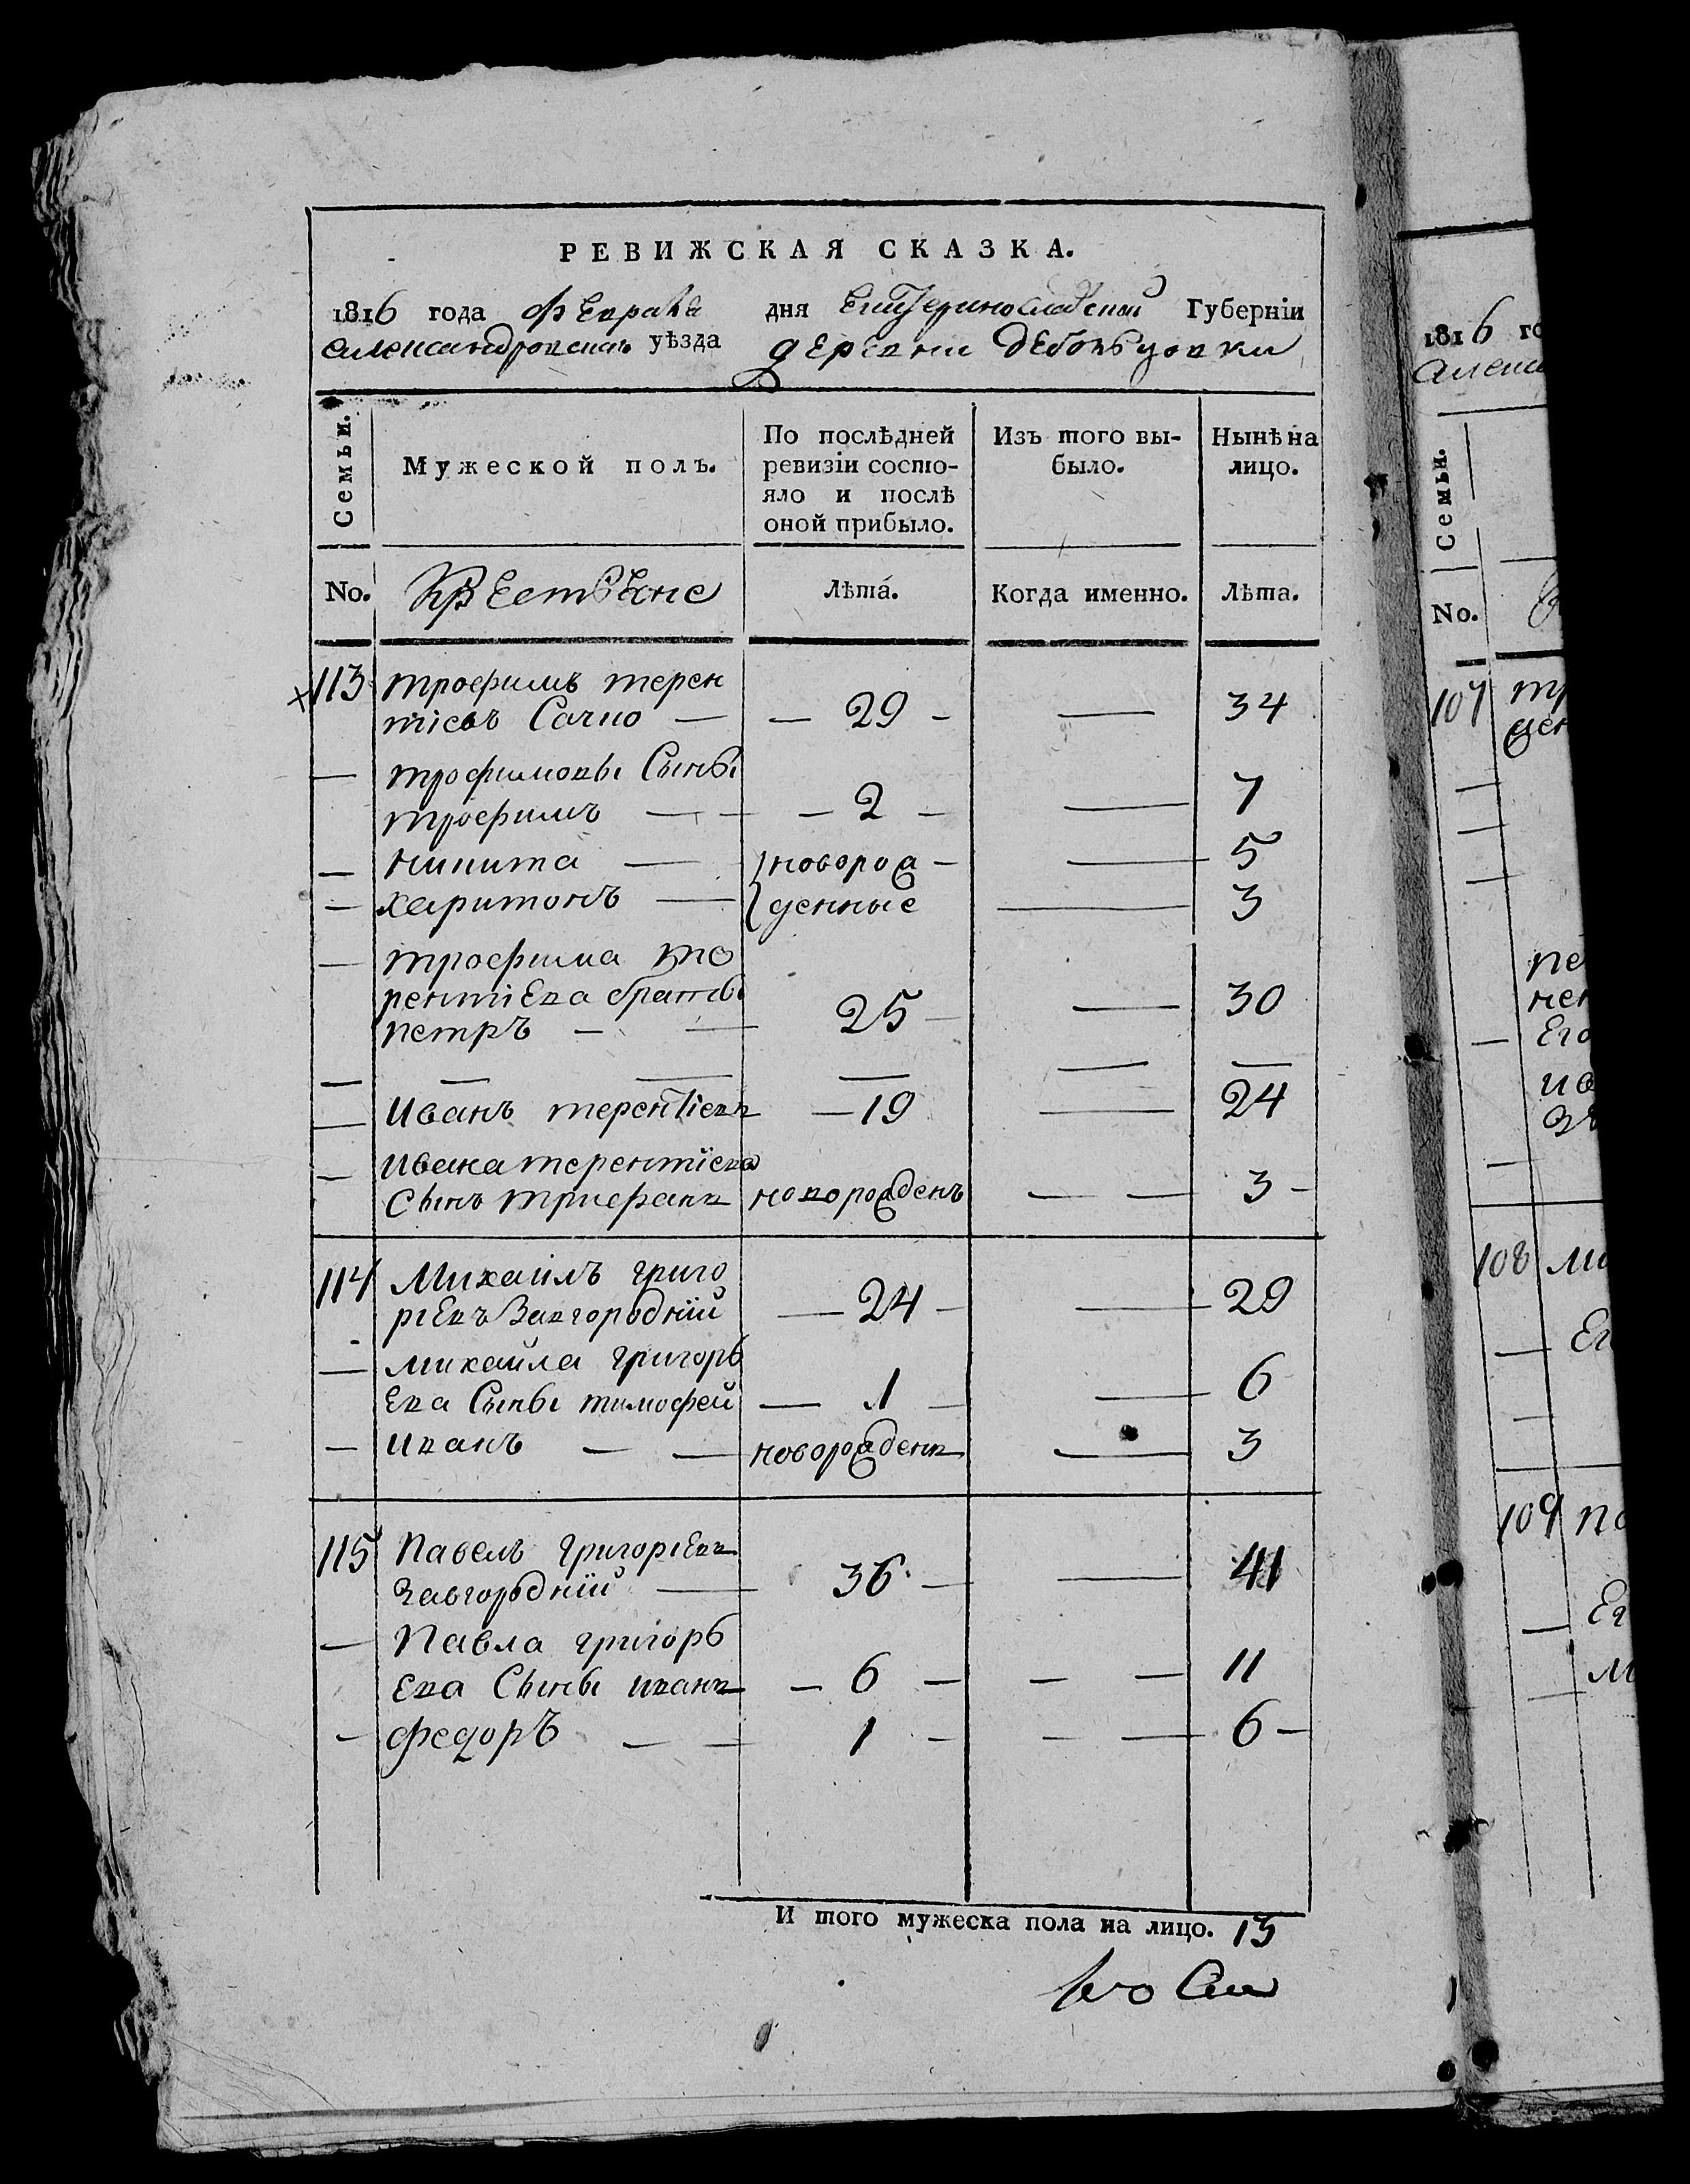 РЕВИЖСКАЯ СКАЗКА.
1816 года февраля дня Екатеринославской Губерніи
Александровскаго уѣзда деревни Дебальцовки
Семьи.
Мужеской полъ.
По послѣдней ревизіи состо-
яло и послѣ
оной прибыло.
Изъ того вы-
было.
Нынѣ на
лицо.
No. Крестьяне Лѣта. Когда именно. Лѣта.
113 трофимъ терен
тіевъ Сочно — — 29 - — 34
— трофимовы Сыны
трофимъ — — — 2 — — 7
— никита — новорож — — 5
— харитонъ — денные — 3
— трофима те
рентіева братьѣ
петръ — — 25 — — 30
— — — — — —
— Иванъ терентіевъ — 19 — 24
— Ивана терентіева
Сынъ трифанъ новорожденъ — — 3 -
114 Михаилъ григо
ріевъ Завгородній — 24 - — 29
— михаила григорь
ева Сыны тимофей — 1 — — 6
— иванъ — — новорожденъ — 3
115 Павелъ григоріевъ
Завгородній — 36 — — 41
— Павла григорь
ева Сыны иванъ — 6 — — — 11
- федоръ — — 1 — — — 6 —
И того мужеска пола на лицо. 13
1816
Алекса
Семьи.
No.
107
108
109